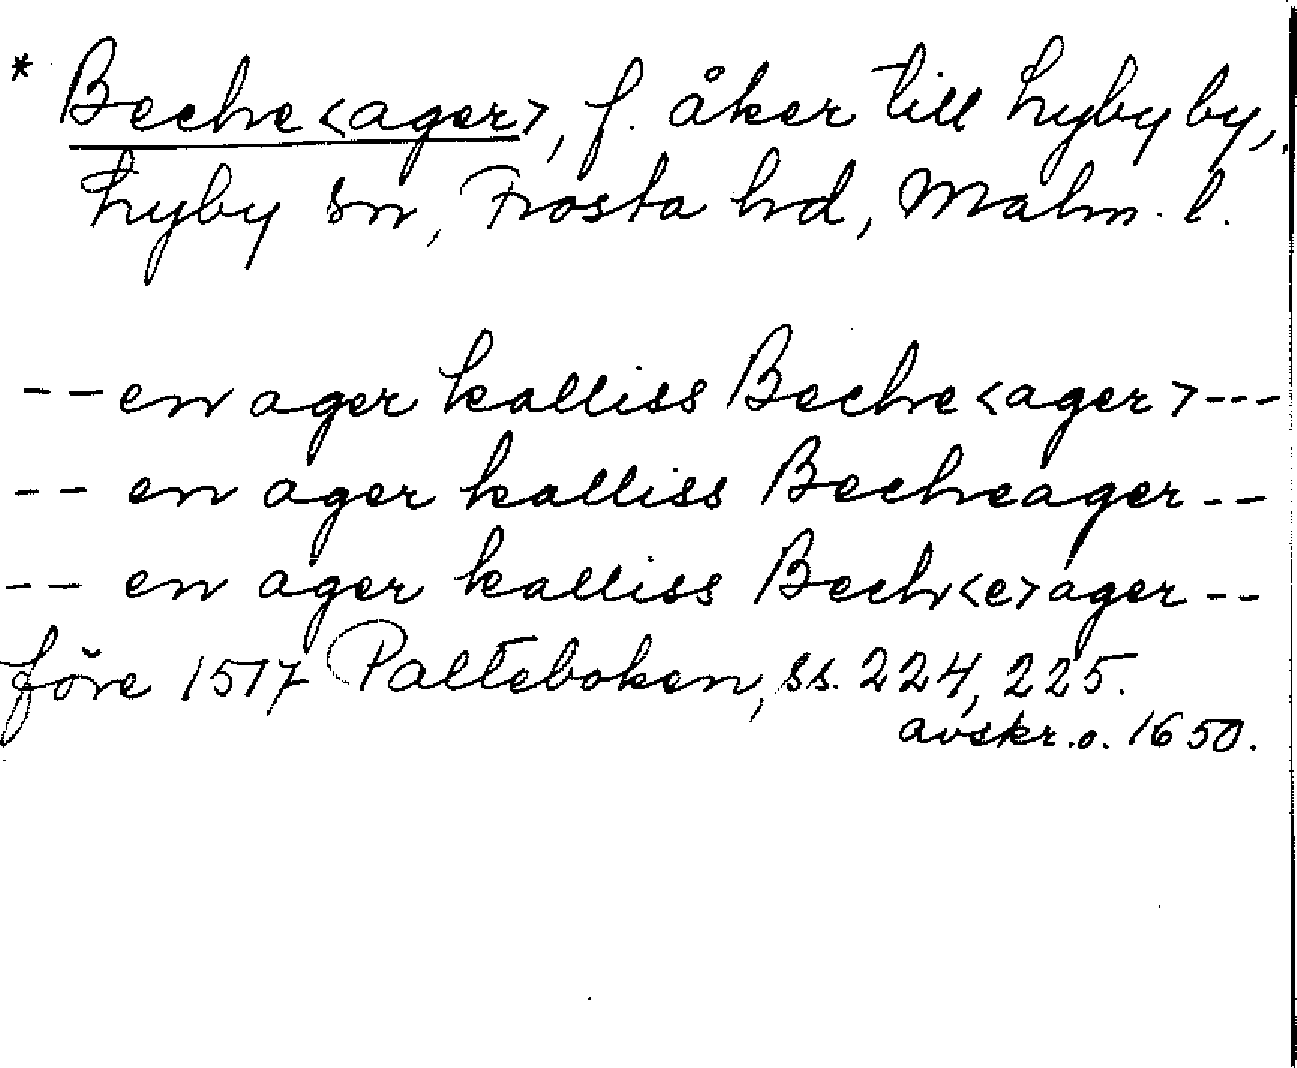 * Beche<ager>, f. åker till Lyby by,
Lyby sn, Frosta hd, Malm. l.
-- en ager kalliss Beche<ager> ---
-- en ager kalliss Becheager --
-- en ager kalliss Bech<e>ager --
före 1517 Palteboken, ss. 224, 225.
avskr. o. 1650.